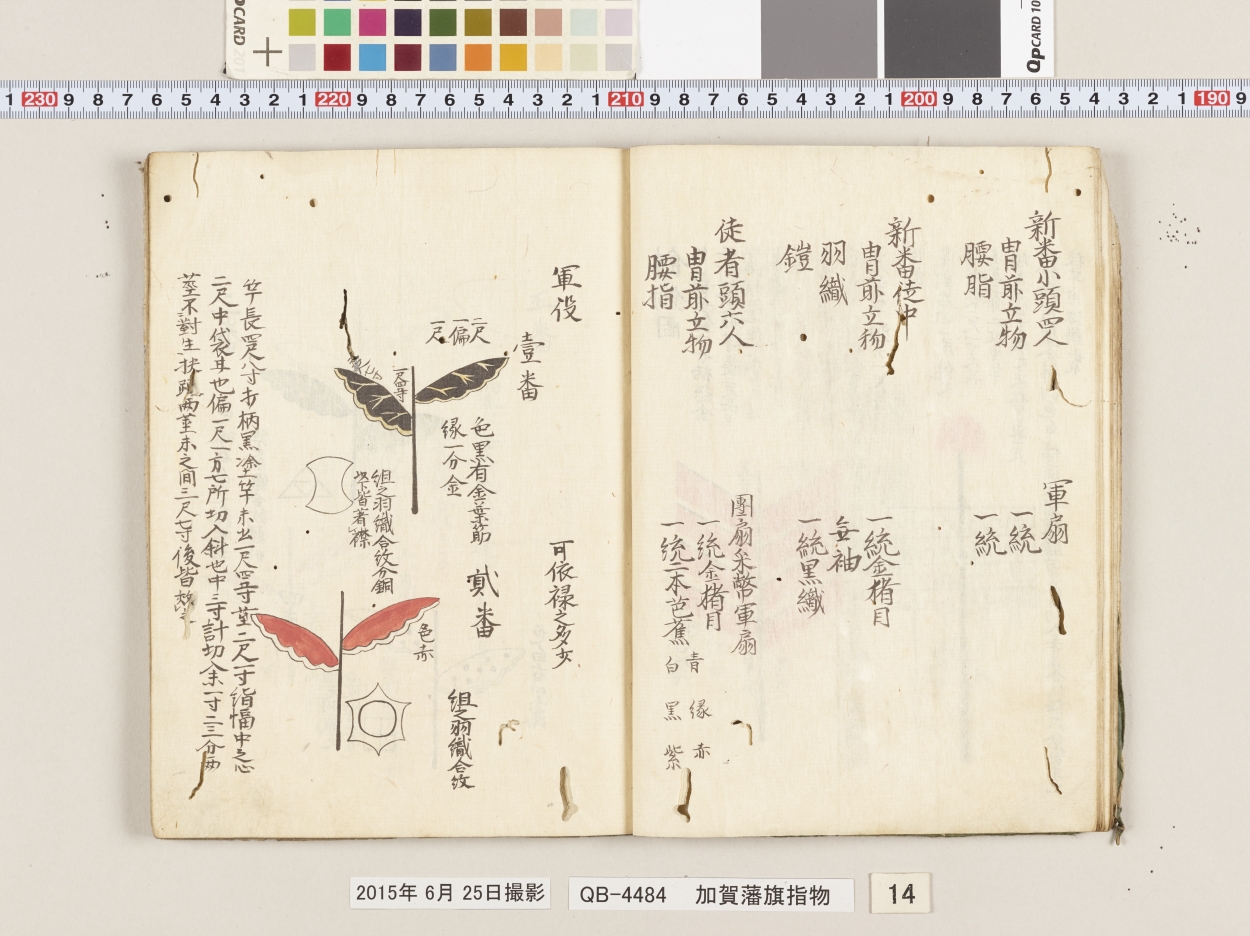 新番小頭四人
冑前立物
腰脂
軍扇
一統
一統
新番徒中
冑前立物
羽織
鎧
一統金猪目
無袖
一統黒織
徒者頭六人
冑前立物
腰指
團扇采幣軍扇
一統金猪目
一統二本芭蕉
青 縁 赤
白 黒 紫
軍役
可依禄之多少
壹番
二尺
一偏
一尺
一尺四寸
色黒有金葉筋
縁一分金
組之羽織合紋分銅
以下皆著襟
貳番
色赤
組之羽織合紋
竿長四尺八寸打柄黒塗竿末出一尺四寸莖二尺一寸絹幅中之心
二尺中袋耳也偏一尺一方七所切入斜也中三寸計切入末一寸二三分両
莖不對生 両莖末之間三尺七寸後皆
2015年 6月 25日撮影
QB-4484 加賀藩旗指物
14
QPCARD 201
QPCARD 10
1 230 9 8 7 6 5 4 3 2 1 220 9 8 7 6 5 4 3 2 1 210 9 8 7 6 5 4 3 2 1 200 9 8 7 6 5 4 3 2 1 190 9